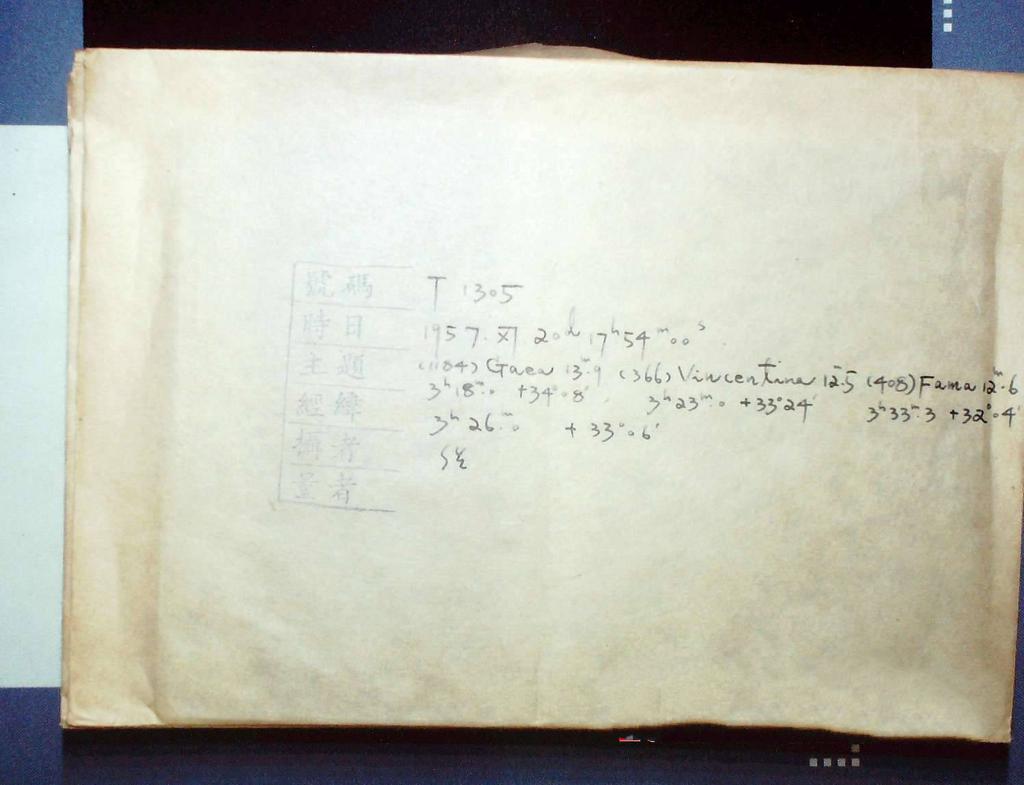 號碼 T 1305
時日 1957. XI 20d 17h54m00s
主題 (1184) Gaea 13m.9 (366) Vincentina 12m.5 (408) Fama 12m.6
3h18m.0 +34°08′ 3h23m.0 +33°24′ 3h33m.3 +32°04′
經緯 3h26m.0 +33°06′
攝者
量者